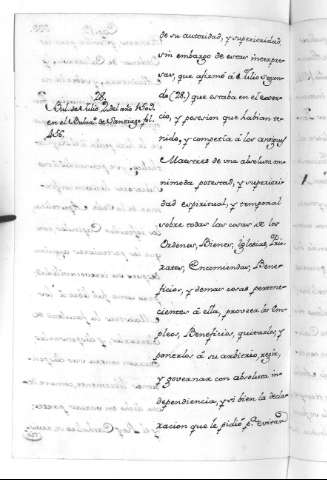 de su autoridad, y superioridad
sin embargo de estar interpre-
sas, que afirmó á Julio Segun-
do (28.) que estaba en el exerci-
cio, y posesion que habian te-
nido, y competia á los antiguos
Maestres de una absoluta om-
nimoda potestad, y superiori-
dad espiritual, y temporal
sobre todas las cosas de las
Ordenes, Bienes, Iglesias, Prio-
ratos, Encomiendas, Bene-
ficios, y demas cosas pertene-
cientes á ella, proveer los Em-
pleos, Beneficios, quitarlos, y
ponerlos á su arbitrio, regir,
y governar con absoluta in-
dependencia, y si bien la decla-
racion que le pidió p.ª evitar
28.
Bul. de Julio 2.º del año
en el Bular.º de Santiago fol.